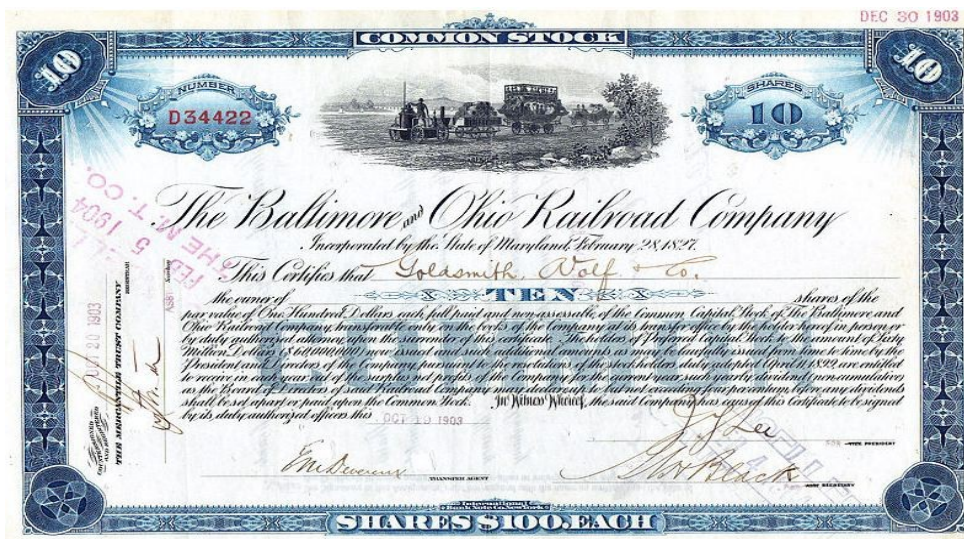 DEC 30 1903
COMMON STOCK
10
10
NUMBER
D34422
SHARES
10
The Baltimore and Ohio Railroad Company
Incorporated by the State of Maryland, February 28, 1827.
This Certifies that Goldsmith, Wolf & Co.
the owner of TEN shares of the
par value of One Hundred Dollars each, full paid and non-assessable, of the Common Capital Stock of The Baltimore and
Ohio Railroad Company, transferable only on the books of the Company at its transfer office by the holder hereof in person or
by duly authorized attorney upon the surrender of this certificate. The holders of Preferred Capital Stock to the amount of Sixty
Million Dollars ($60,000,000) issued and such additional amounts as may be lawfully issued from time to time by the
President and Directors of the Company, pursuant to the resolution of the stockholders duly adopted April 1899, are entitled
to receive in each year out of the surplus net profits of the Company for the current year such yearly dividend, non-cumulative
as the Board of Directors of said Railroad Company may declare up to but not exceeding four per centum, before any dividends
shall be set apart or paid upon the Common Stock. In Witness Whereof, the said Company has caused this Certificate to be signed
by its duly authorized officers this OCT 19 1903
VICE PRESIDENT
TRANSFER AGENT
ASST SECRETARY
COUNTERSIGNED
AND REGISTERED
OCT 20 1903
THE MERCANTILE TRUST COMPANY
REGISTRAR
FEB 5 1904
THE M. T. CO.
COMMON
International
Bank Note Co. New York
SHARES $100. EACH